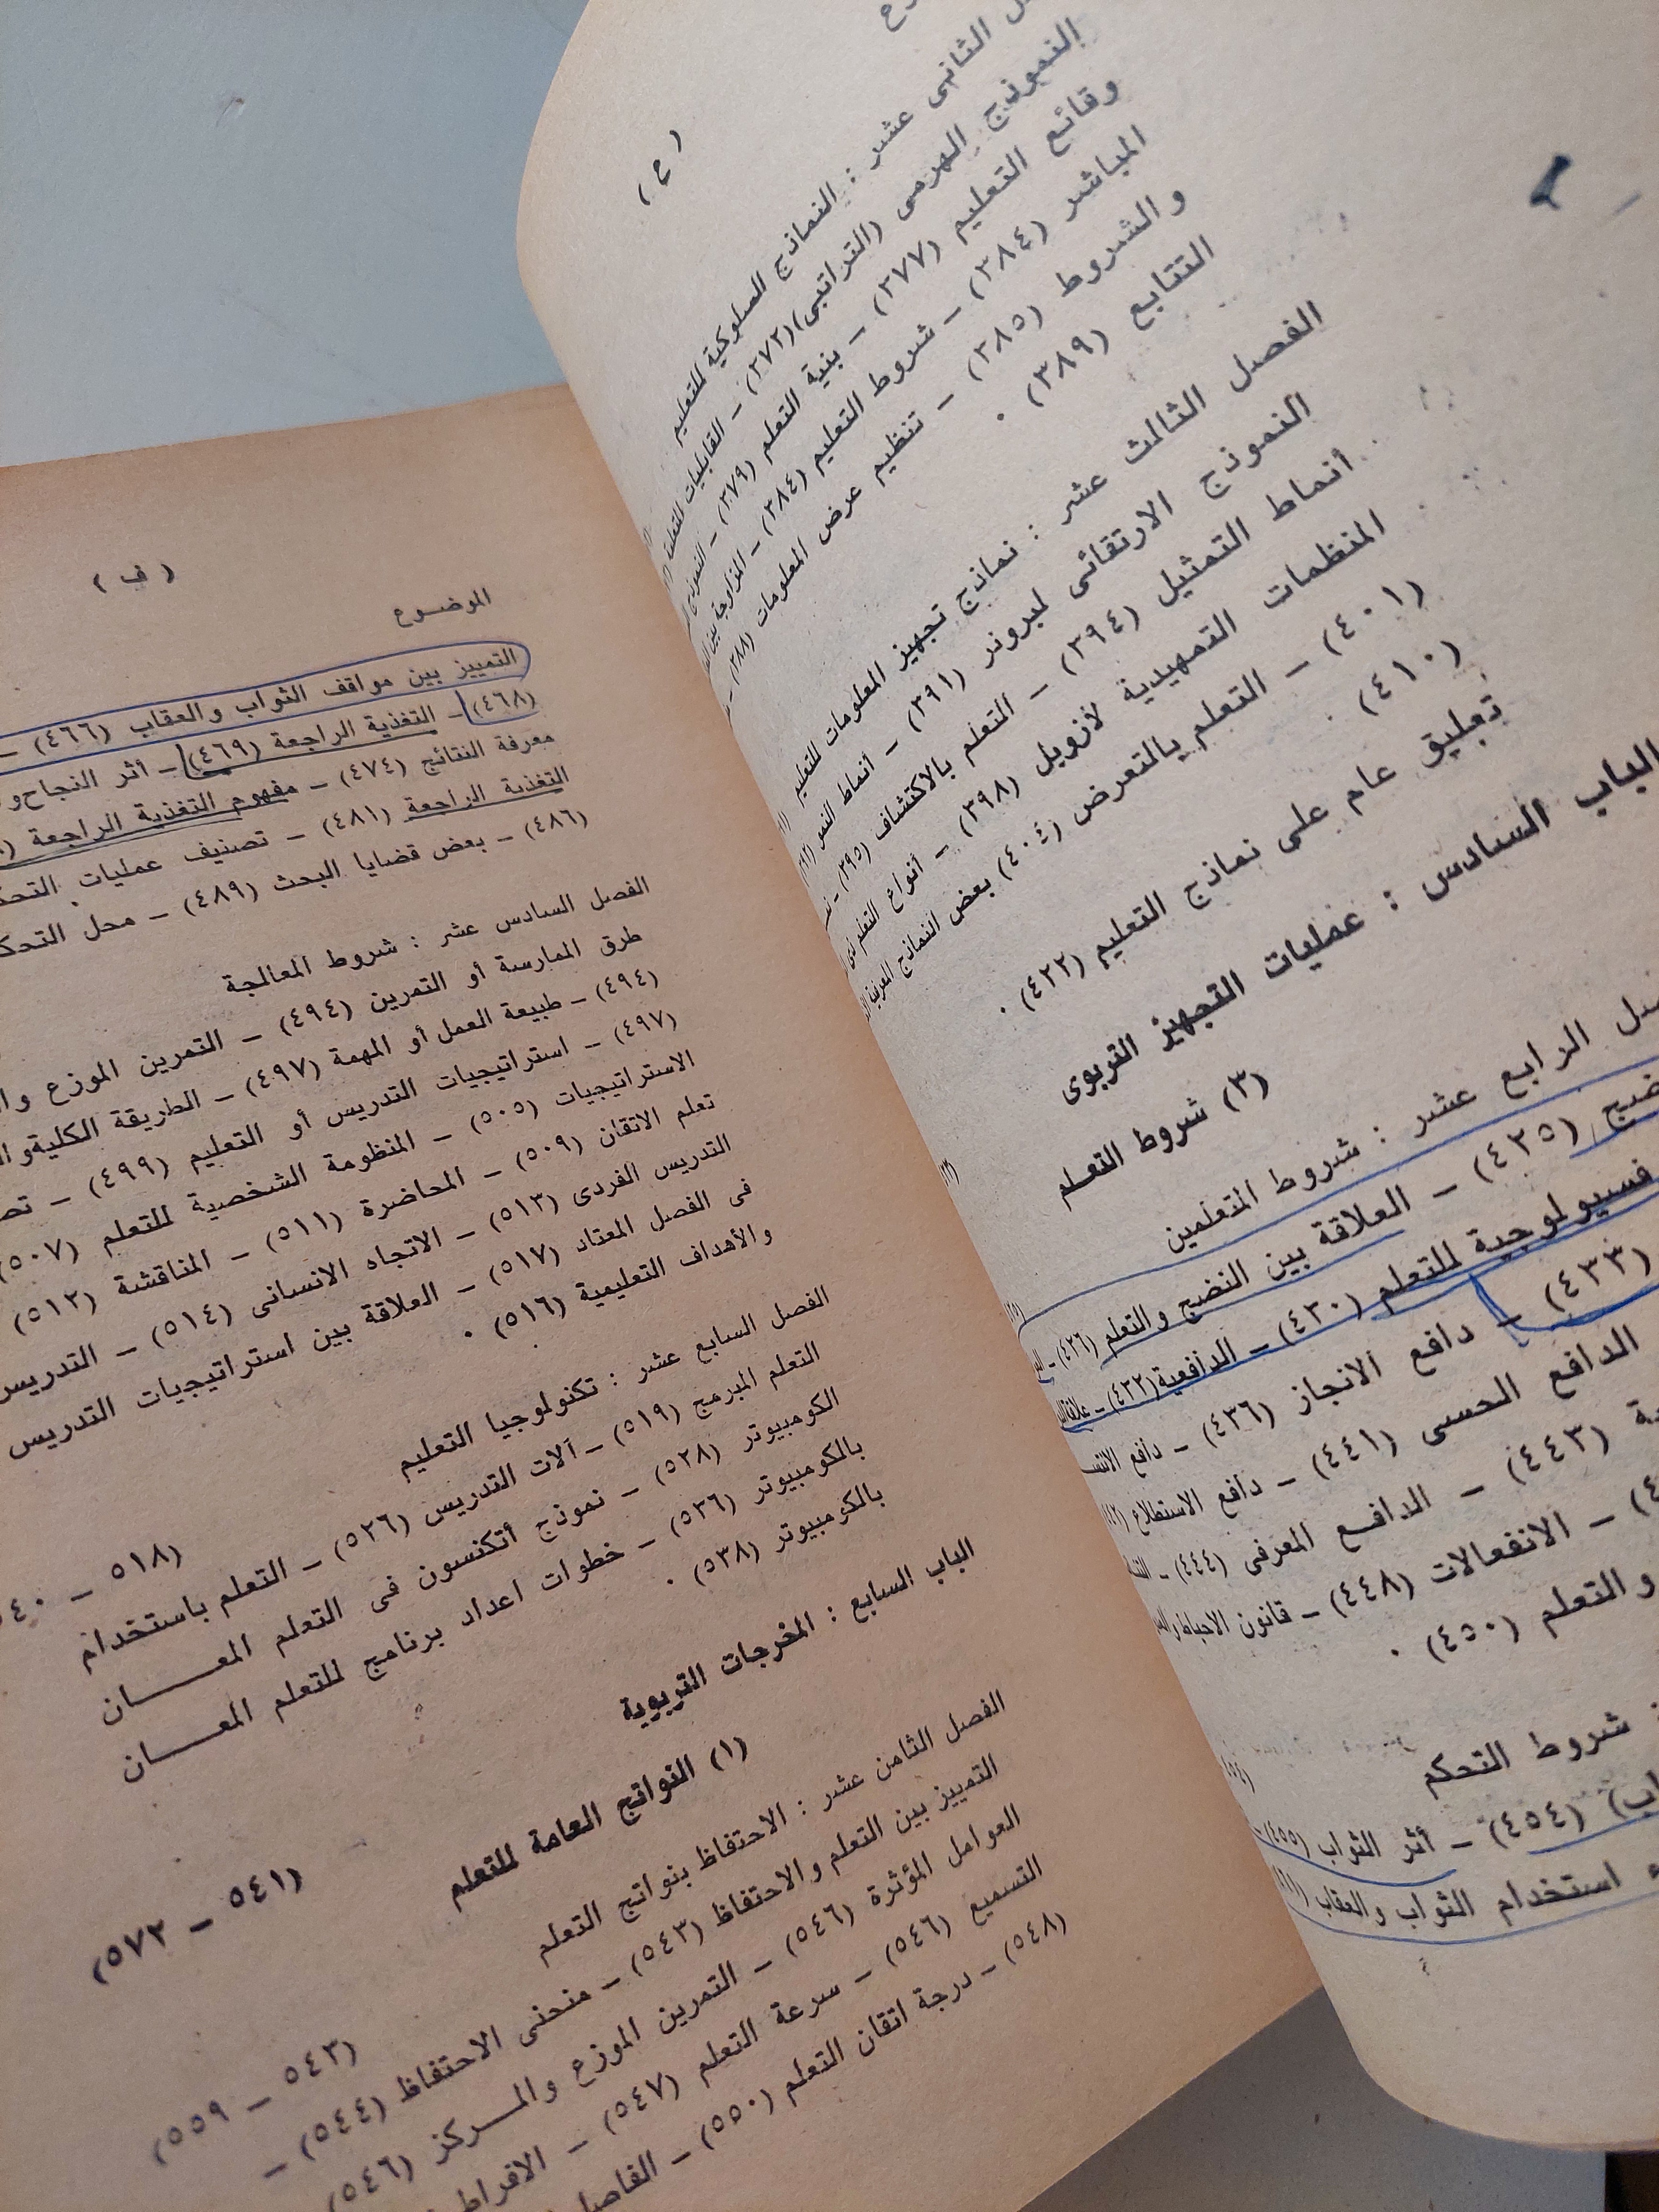 ( ع )
الثانى عشر : النماذج السلوكية للتعليم
النموذج الهرمى (التراتبى) (٣٧٢) – القابليات للتعلم
وقائع التعليم (٣٧٧) – بنية التعلم (٣٧٩) – النموذج
المباشر (٣٨٤) – شروط التعليم (٣٨٤) – المزاوجة بين
والشروط (٣٨٥) – تنظيم عرض المعلومات (٣٨٨) –
التتابع (٣٨٩) .
الفصل الثالث عشر : نماذج تجهيز المعلومات للتعليم
النموذج الارتقائى لبرونر (٣٩١) – أنماط النمو
أنماط التمثيل (٣٩٤) – التعلم بالاكتشاف (٣٩٥) –
المنظمات التمهيدية لأزوبل (٣٩٨) – أنواع التعلم لدى
(٤٠١) – التعلم بالتعرض (٤٠٤) بعض النماذج المعرفية
(٤١٠) .
تعليق عام على نماذج التعليم (٤٢٢) .
الباب السادس : عمليات التجهيز التربوى
(٣) شروط التعلم
الرابع عشر : شروط المتعلمين
(٤٢٥) – العلاقة بين النضج والتعلم (٤٢٦) –
فسيولوجية للتعلم (٤٣٠) – الدافعية (٤٣٢) – علاقة
(٤٣٣) – دافع الانجاز (٤٣٦) – دافع
الدافع الحسى (٤٤١) – دافع الاستطلاع
(٤٤٣) – الدافع المعرفى (٤٤٤) –
– الانفعالات (٤٤٨) – قانون الاحباط
والتعلم (٤٥٠) .
شروط التحكم
(٤٥٤) – أثر الثواب (٤٥٥) –
استخدام الثواب والعقاب
( ف )
الموضوع
التمييز بين مواقف الثواب والعقاب (٤٦٦) –
(٤٦٨) – التغذية الراجعة (٤٦٩) – أثر النجاح و
معرفة النتائج (٤٧٤) – مفهوم التغذية الراجعة
التغذية الراجعة (٤٨١) – تصنيف عمليات
(٤٨٦) – بعض قضايا البحث (٤٨٩) – محل
الفصل السادس عشر : شروط المعالجة
طرق الممارسة أو التمرين (٤٩٤) – التمرين الموزع
(٤٩٤) – طبيعة العمل أو المهمة (٤٩٧) – الطريقة الكلية و
(٤٩٧) – استراتيجيات التدريس أو التعليم (٤٩٩) –
الاستراتيجيات (٥٠٥) – المنظومة الشخصية للتعلم (٥٠٧)
تعلم الاتقان (٥٠٩) – المحاضرة (٥١١) – المناقشة (٥١٢)
التدريس الفردى (٥١٣) – الاتجاه الانسانى (٥١٤) – التدريس
فى الفصل المعتاد (٥١٧) – العلاقة بين استراتيجيات التدريس
والأهداف التعليمية (٥١٦) .
الفصل السابع عشر : تكنولوجيا التعليم
(٥١٨ –
التعلم المبرمج (٥١٩) – آلات التدريس (٥٢٦) – التعلم باستخدام
الكومبيوتر (٥٢٨) – نموذج أتكنسون فى التعلم المعــان
بالكومبيوتر (٥٣٦) – خطوات اعداد برنامج للتعلم المعــان
بالكومبيوتر (٥٣٨) .
الباب السابع : المخرجات التربوية
(١) النواتج العامة للتعلم (٥٤١ – ٥٧٢)
الفصل الثامن عشر : الاحتفاظ بنواتج التعلم (٥٤٣ – ٥٥٩)
التمييز بين التعلم والاحتفاظ (٥٤٣) – منحنى الاحتفاظ (٥٤٤) –
العوامل المؤثرة (٥٤٦) – التمرين الموزع والمــركز (٥٤٦)
التسميع (٥٤٦) – سرعة التعلم (٥٤٧) – الافراط
(٥٤٨) – درجة اتقان التعلم (٥٥٠) –